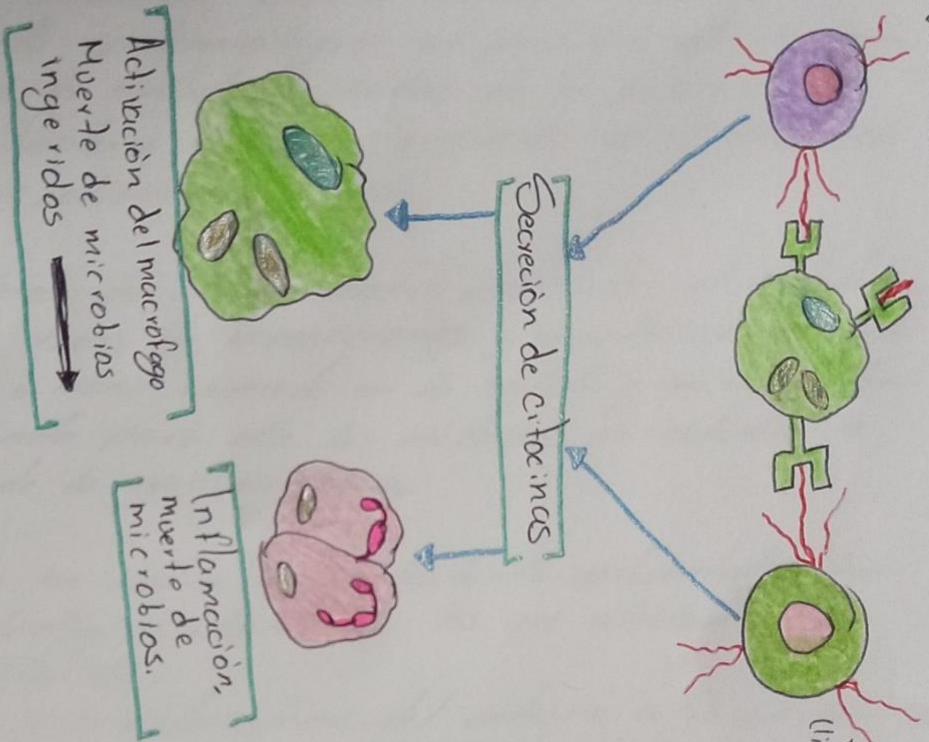 Secreción de citocinas
Activación del macrofago
Muerte de microbios
ingeridos
Inflamación,
muerte de
microbios.